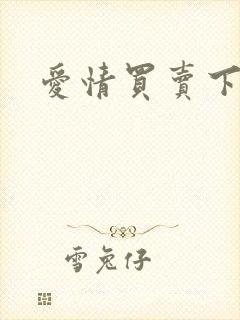 愛情買賣下
雪兔仔